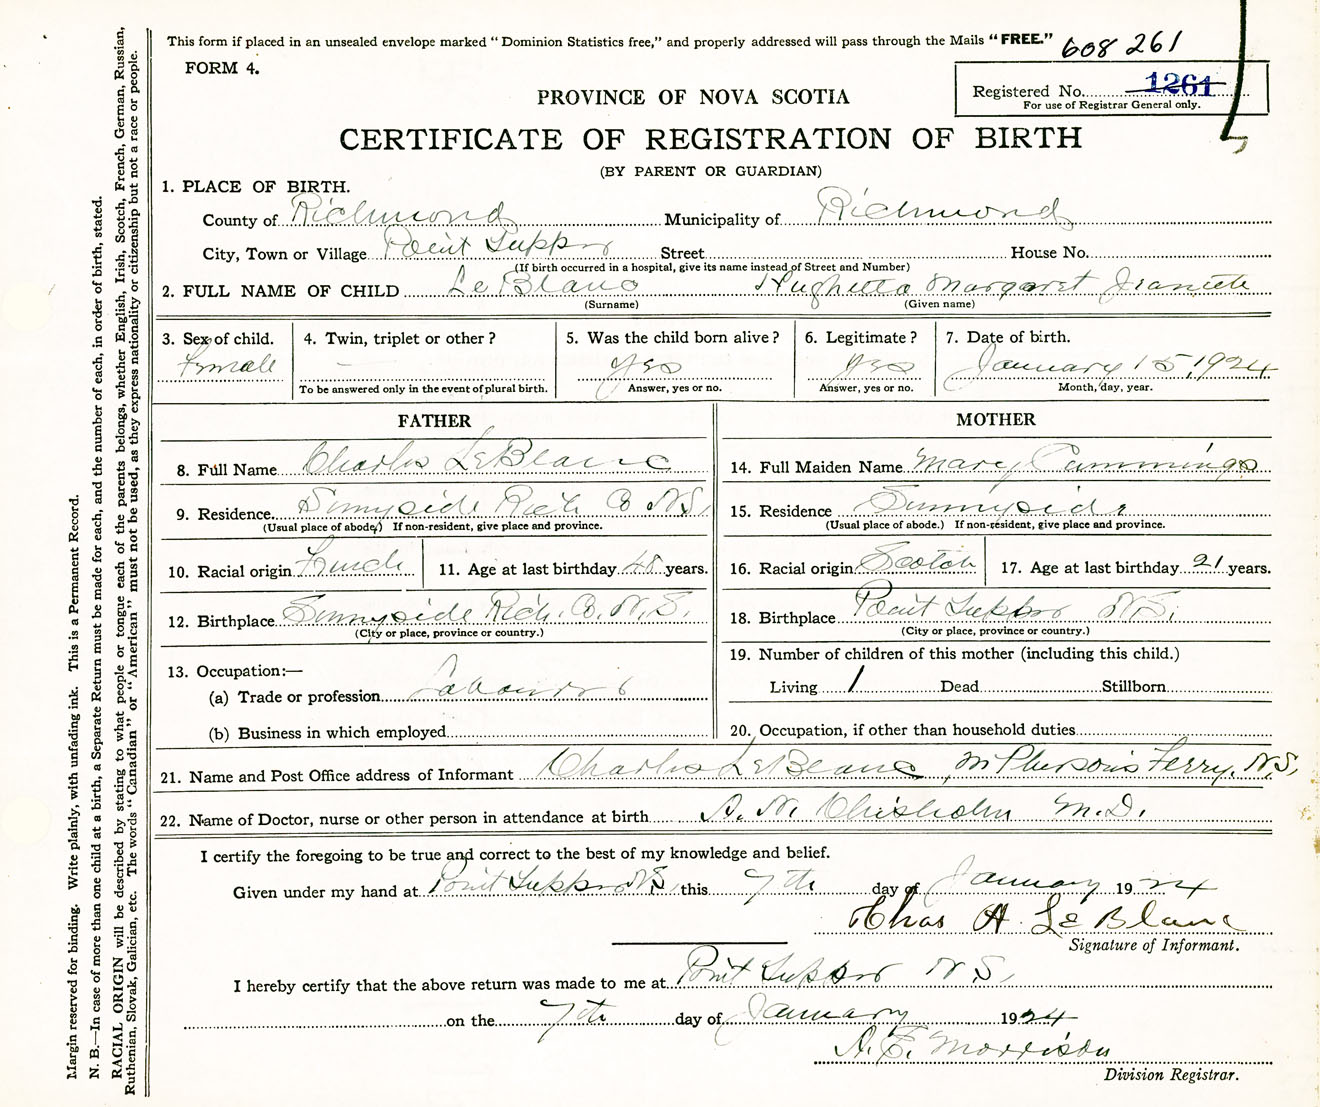 This form if placed in an unsealed envelope marked "Dominion Statistics free," and properly addressed will pass through the Mails "FREE."
608 261
FORM 4.
Registered No. 1261
For use of Registrar General only.
PROVINCE OF NOVA SCOTIA
CERTIFICATE OF REGISTRATION OF BIRTH
(BY PARENT OR GUARDIAN)
1. PLACE OF BIRTH.
County of Richmond Municipality of Richmond
City, Town or Village Point Tupper Street House No.
(If birth occurred in a hospital, give its name instead of Street and Number)
2. FULL NAME OF CHILD Le Blanc Hughella Margaret
(Surname) (Given name)
3. Sex of child. 4. Twin, triplet or other? 5. Was the child born alive? 6. Legitimate? 7. Date of birth.
Female — yes yes January 15, 1924
To be answered only in the event of plural birth. Answer, yes or no. Answer, yes or no. Month, day, year.
FATHER MOTHER
8. Full Name Charles LeBlanc 14. Full Maiden Name Mary Cummings
9. Residence Sunnyside Rich Co N.S. 15. Residence Sunnyside
(Usual place of abode) If non-resident, give place and province. (Usual place of abode.) If non-resident, give place and province.
10. Racial origin French 11. Age at last birthday 48 years. 16. Racial origin Scotch 17. Age at last birthday 21 years.
12. Birthplace Sunnyside Rich. Co. N.S. 18. Birthplace Point Tupper N.S.
(City or place, province or country.) (City or place, province or country.)
13. Occupation:— 19. Number of children of this mother (including this child.)
(a) Trade or profession Labourer Living 1 Dead Stillborn
(b) Business in which employed 20. Occupation, if other than household duties
21. Name and Post Office address of Informant Charles LeBlanc McPherson's Ferry, N.S.
22. Name of Doctor, nurse or other person in attendance at birth A. N. Chisholm M.D.
I certify the foregoing to be true and correct to the best of my knowledge and belief.
Given under my hand at Point Tupper N.S. this 7th day of January 1924
Chas H. Le Blanc
Signature of Informant.
I hereby certify that the above return was made to me at Point Tupper N.S.
on the 7th day of January 1924
Morrison
Division Registrar.
Margin reserved for binding. Write plainly, with unfading ink. This is a Permanent Record.
N. B.—In case of more than one child at a birth, a Separate Return must be made for each, and the number of each, in order of birth, stated.
RACIAL ORIGIN will be described by stating to what people or tongue each of the parents belongs, whether English, Irish, Scotch, French, German, Russian,
Ruthenian, Slovak, Galician, etc. The words "Canadian" or "American" must not be used, as they express nationality or citizenship but not a race or people.